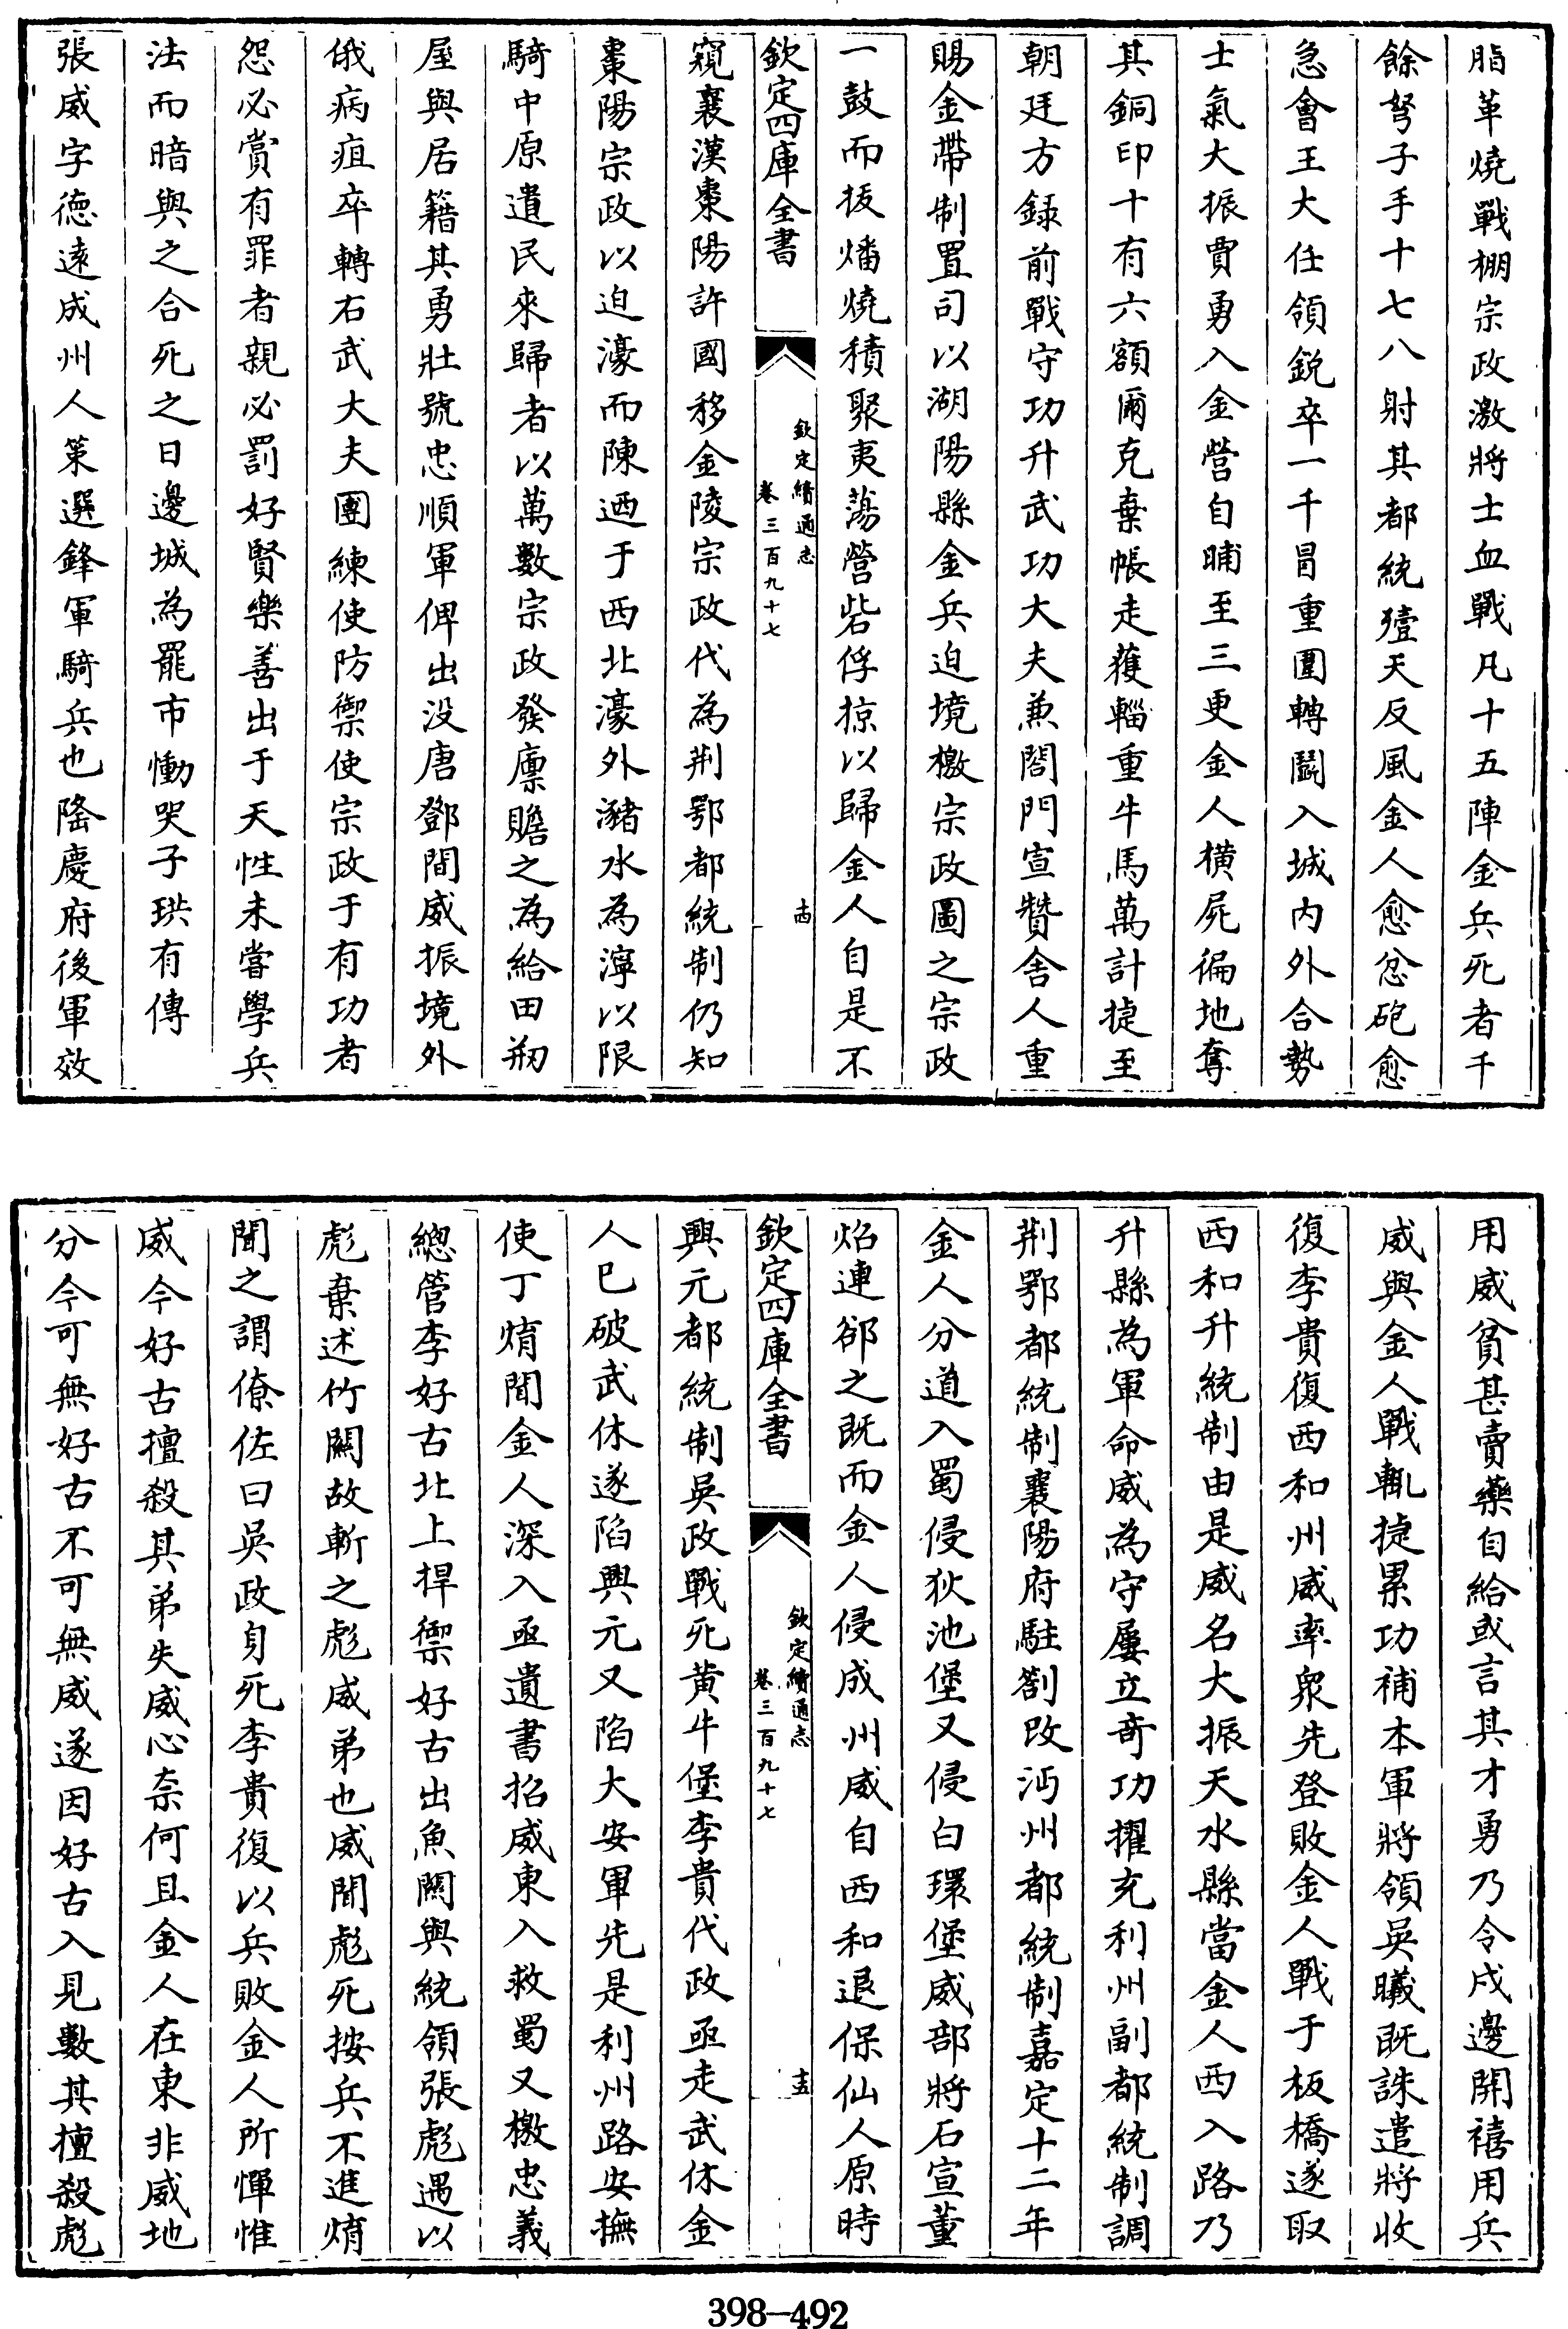 脂革燒戰棚宗政激將士血戰凡十五陣金兵死者千
餘弩子手十七八射其都統殪天反風金人愈忿砲愈
急會王大任領鋭卒一千冒重圍轉鬭入城内外合勢
士氣大振賈勇入金營自晡至三更金人横屍徧地奪
其銅印十有六額爾克棄帳走獲輜重牛馬萬計捷至
朝廷方録前戰守功升武功大夫兼閤門宣贊舍人重
賜金帶制置司以湖陽縣金兵迫境檄宗政圖之宗政
一鼓而拔燔燒積聚夷蕩營砦俘掠以歸金人自是不
欽定四庫全書
欽定續通志
卷三百九十七
十四
窺襄漢棗陽許國移金陵宗政代為荆鄂都統制仍知
棗陽宗政以迫濠而陳迺于西北濠外瀦水為濘以限
騎中原遺民來歸者以萬數宗政發廪贍之為給田剏
屋與居籍其勇壯號忠順軍俾出没唐鄧間威振境外
俄病疽卒轉右武大夫團練使防禦使宗政于有功者
怨必賞有罪者親必罰好賢樂善出于天性未嘗學兵
法而暗與之合死之日邊城為罷市慟哭子珙有傳
張威字德遠成州人策選鋒軍騎兵也隆慶府後軍效
用威貧甚賣藥自給或言其才勇乃令戍邊開禧用兵
威與金人戰輒捷累功補本軍將領吳曦既誅遣將收
復李貴復西和州威率衆先登敗金人戰于板橋遂取
西和升統制由是威名大振天水縣當金人西入路乃
升縣為軍命威為守屢立奇功擢充利州副都統制調
荆鄂都統制襄陽府駐劄改沔州都統制嘉定十二年
金人分道入蜀侵狄池堡又侵白環堡威部將石宣董
炤連郤之既而金人侵成州威自西和退保仙人原時
欽定四庫全書
欽定續通志
卷三百九十七
十五
興元都統制吳政戰死黄牛堡李貴代政亟走武休金
人已破武休遂陷興元又陷大安軍先是利州路安撫
使丁焴聞金人深入亟遺書招威東入救蜀又檄忠義
總管李好古北上捍禦好古出魚關與統領張彪遇以
彪棄述竹關故斬之彪威弟也威聞彪死按兵不進焴
聞之謂僚佐曰吳政身死李貴復以兵敗金人所憚惟
威今好古擅殺其弟失威心奈何且金人在東非威地
分今可無好古不可無威遂因好古入見數其擅殺彪
398-492